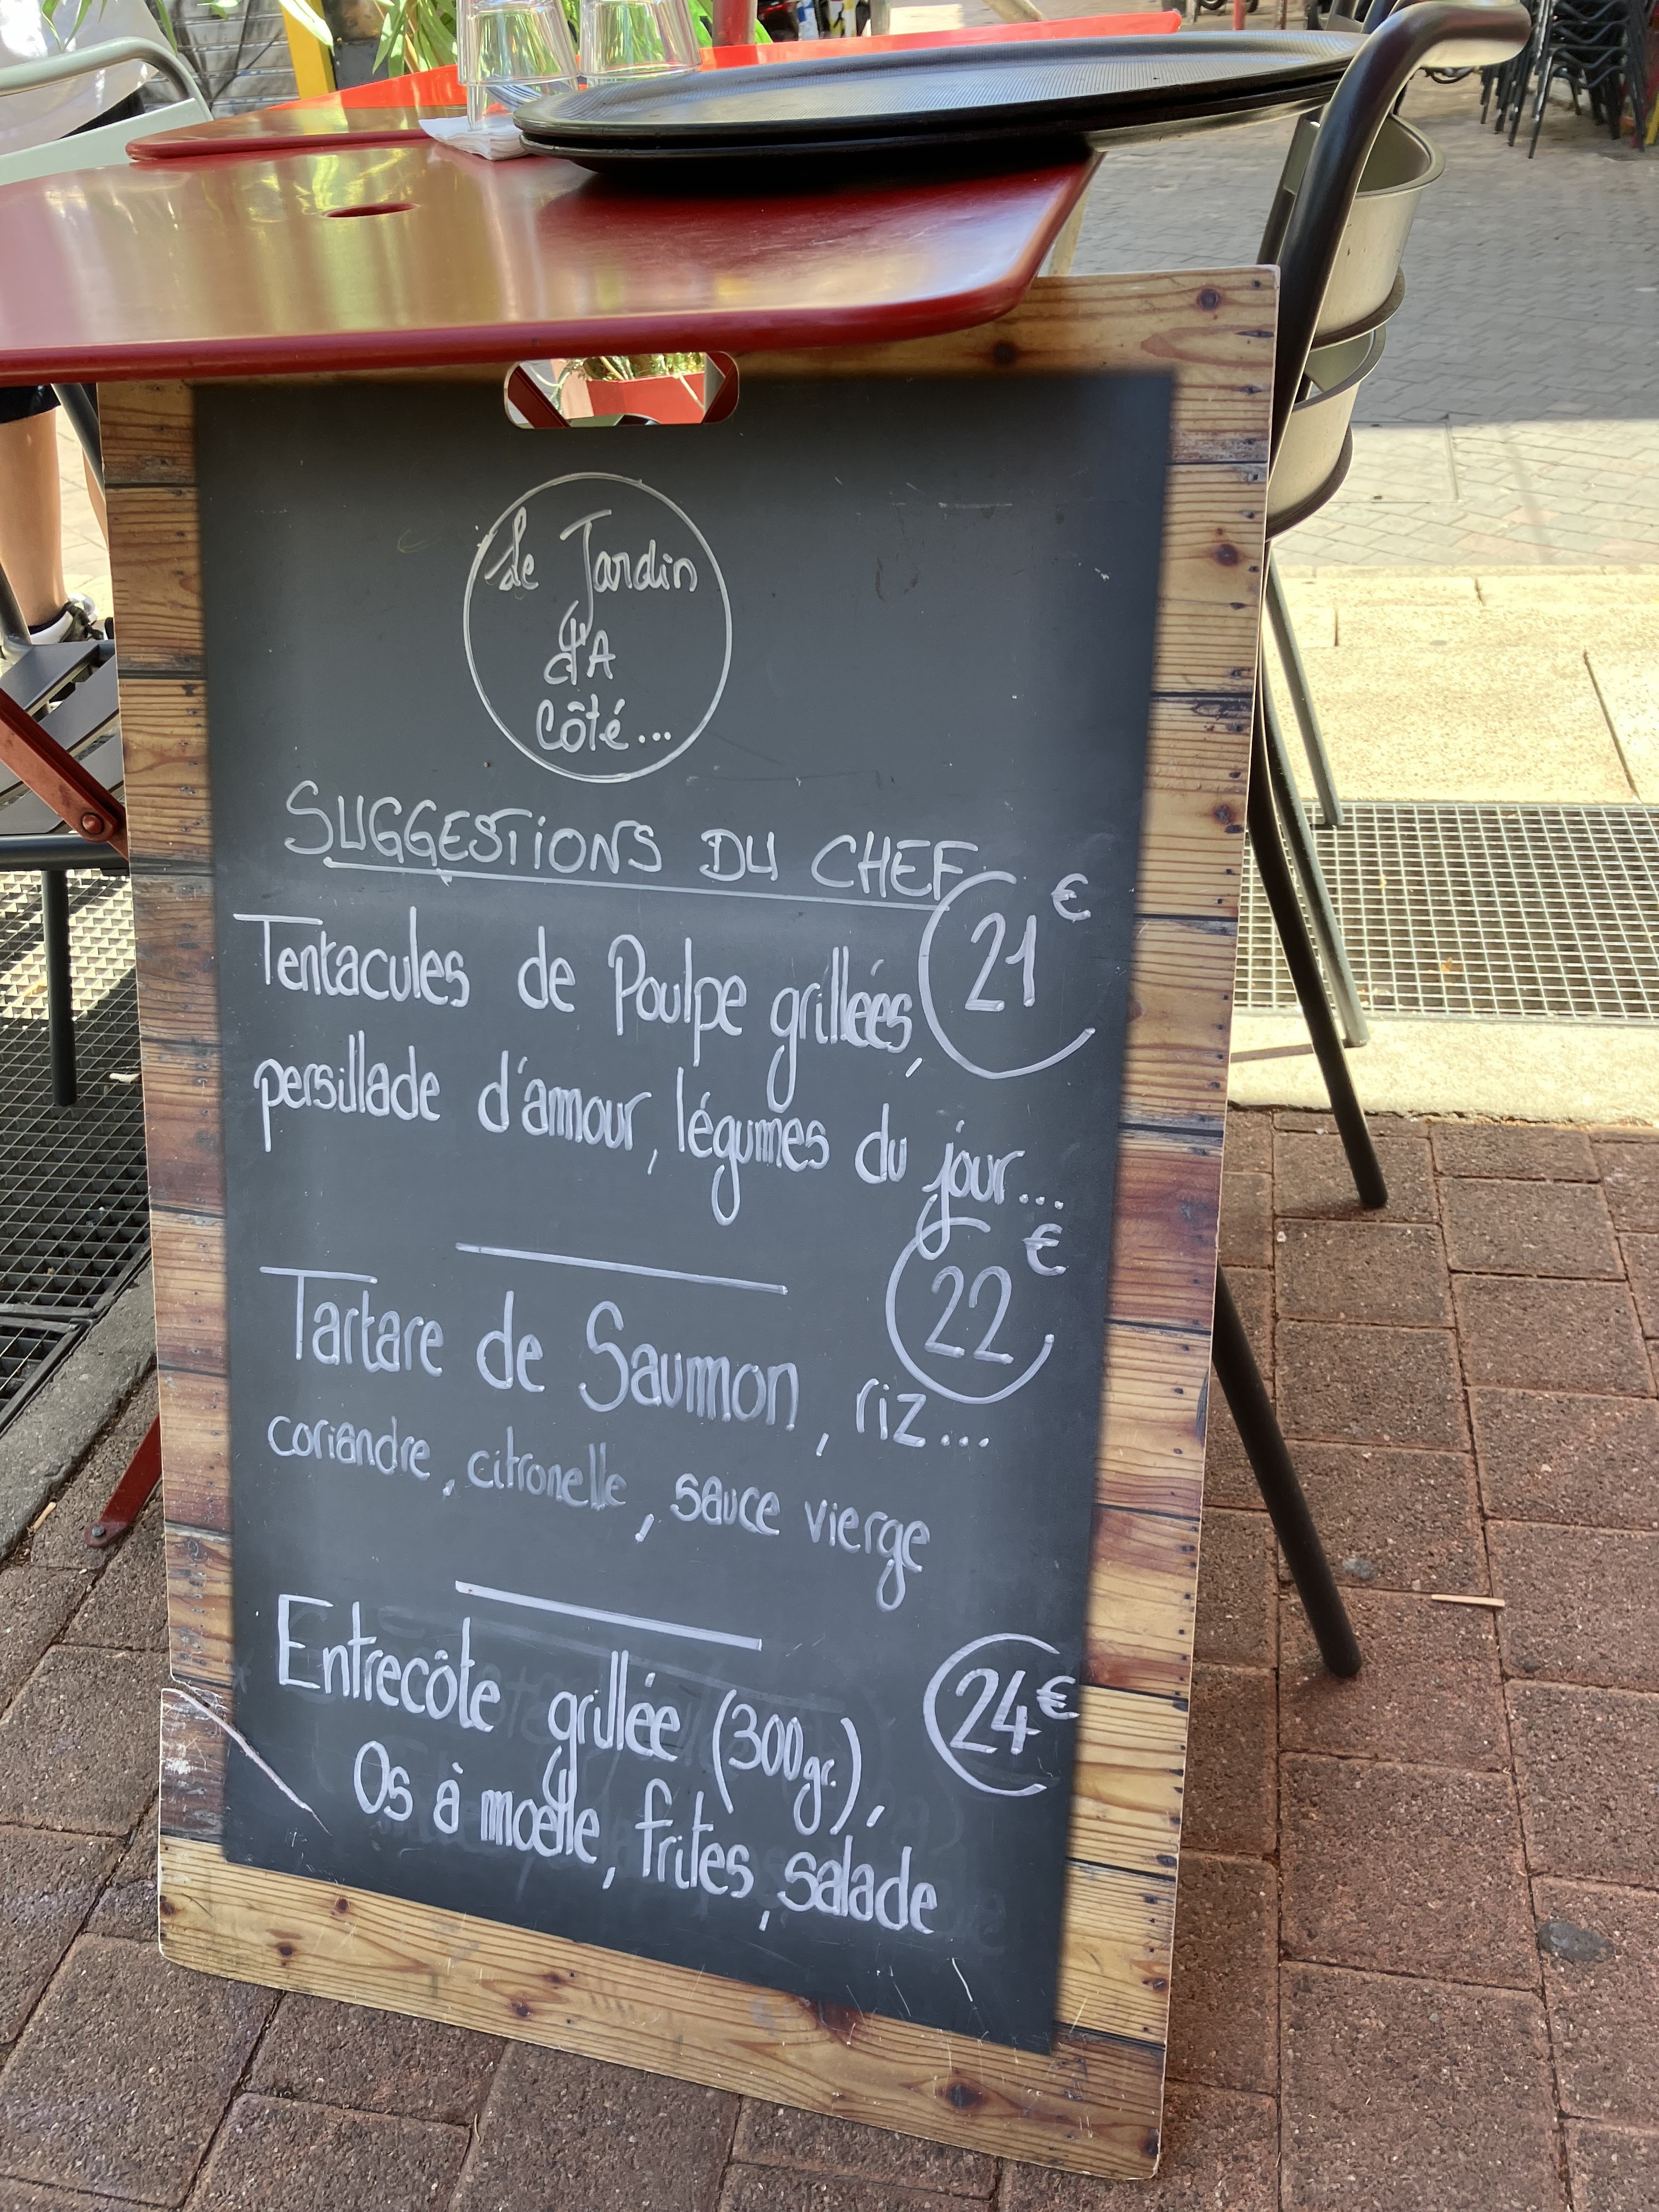 Le Jardin
d'A
Côté...
SUGGESTIONS DU CHEF
Tentacules de Poulpe grillées, 21€
persillade d'amour, légumes du jour...
Tartare de Saumon, riz... 22€
coriandre, citronelle, sauce vierge
Entrecôte grillée (300gr.), 24€
Os à moelle, frites, salade